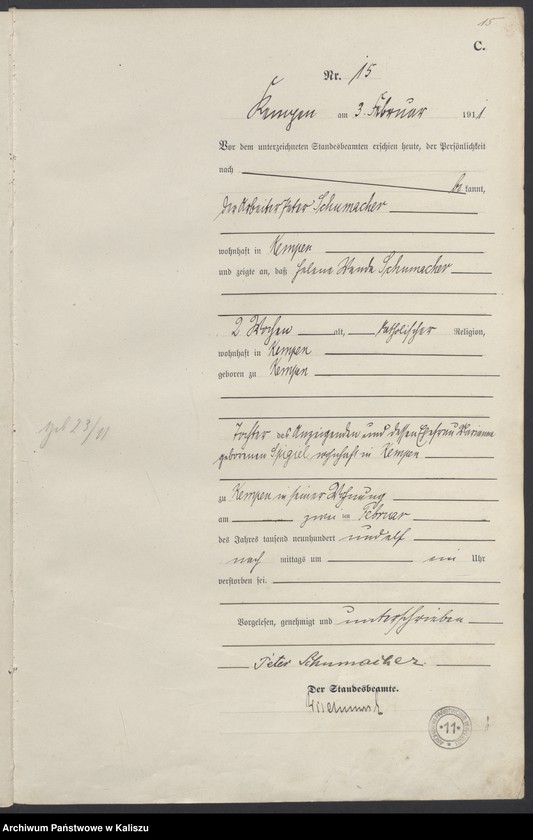 15
C.
Nr. 15
Kempen am 3. Februar 1911
Vor dem unterzeichneten Standesbeamten erschien heute, der Persönlichkeit
nach
be kannt,
der Arbeiter Peter Schumacher
wohnhaft in Kempen
und zeigte an, daß Helene Wanda Schumacher
2 Wochen alt, katholischer Religion,
wohnhaft in Kempen
geboren zu Kempen
Tochter des Anzeigenden und dessen Ehefrau Marianna
geborenen wohnhaft in Kempen
zu Kempen in seiner Wohnung
am zwei ten Februar
des Jahres tausend neunhundert und elf
nach mittags um ein Uhr
verstorben sei.
Vorgelesen, genehmigt und unterschrieben
Peter Schumacher
Der Standesbeamte.
11
Archiwum Państwowe w Kaliszu